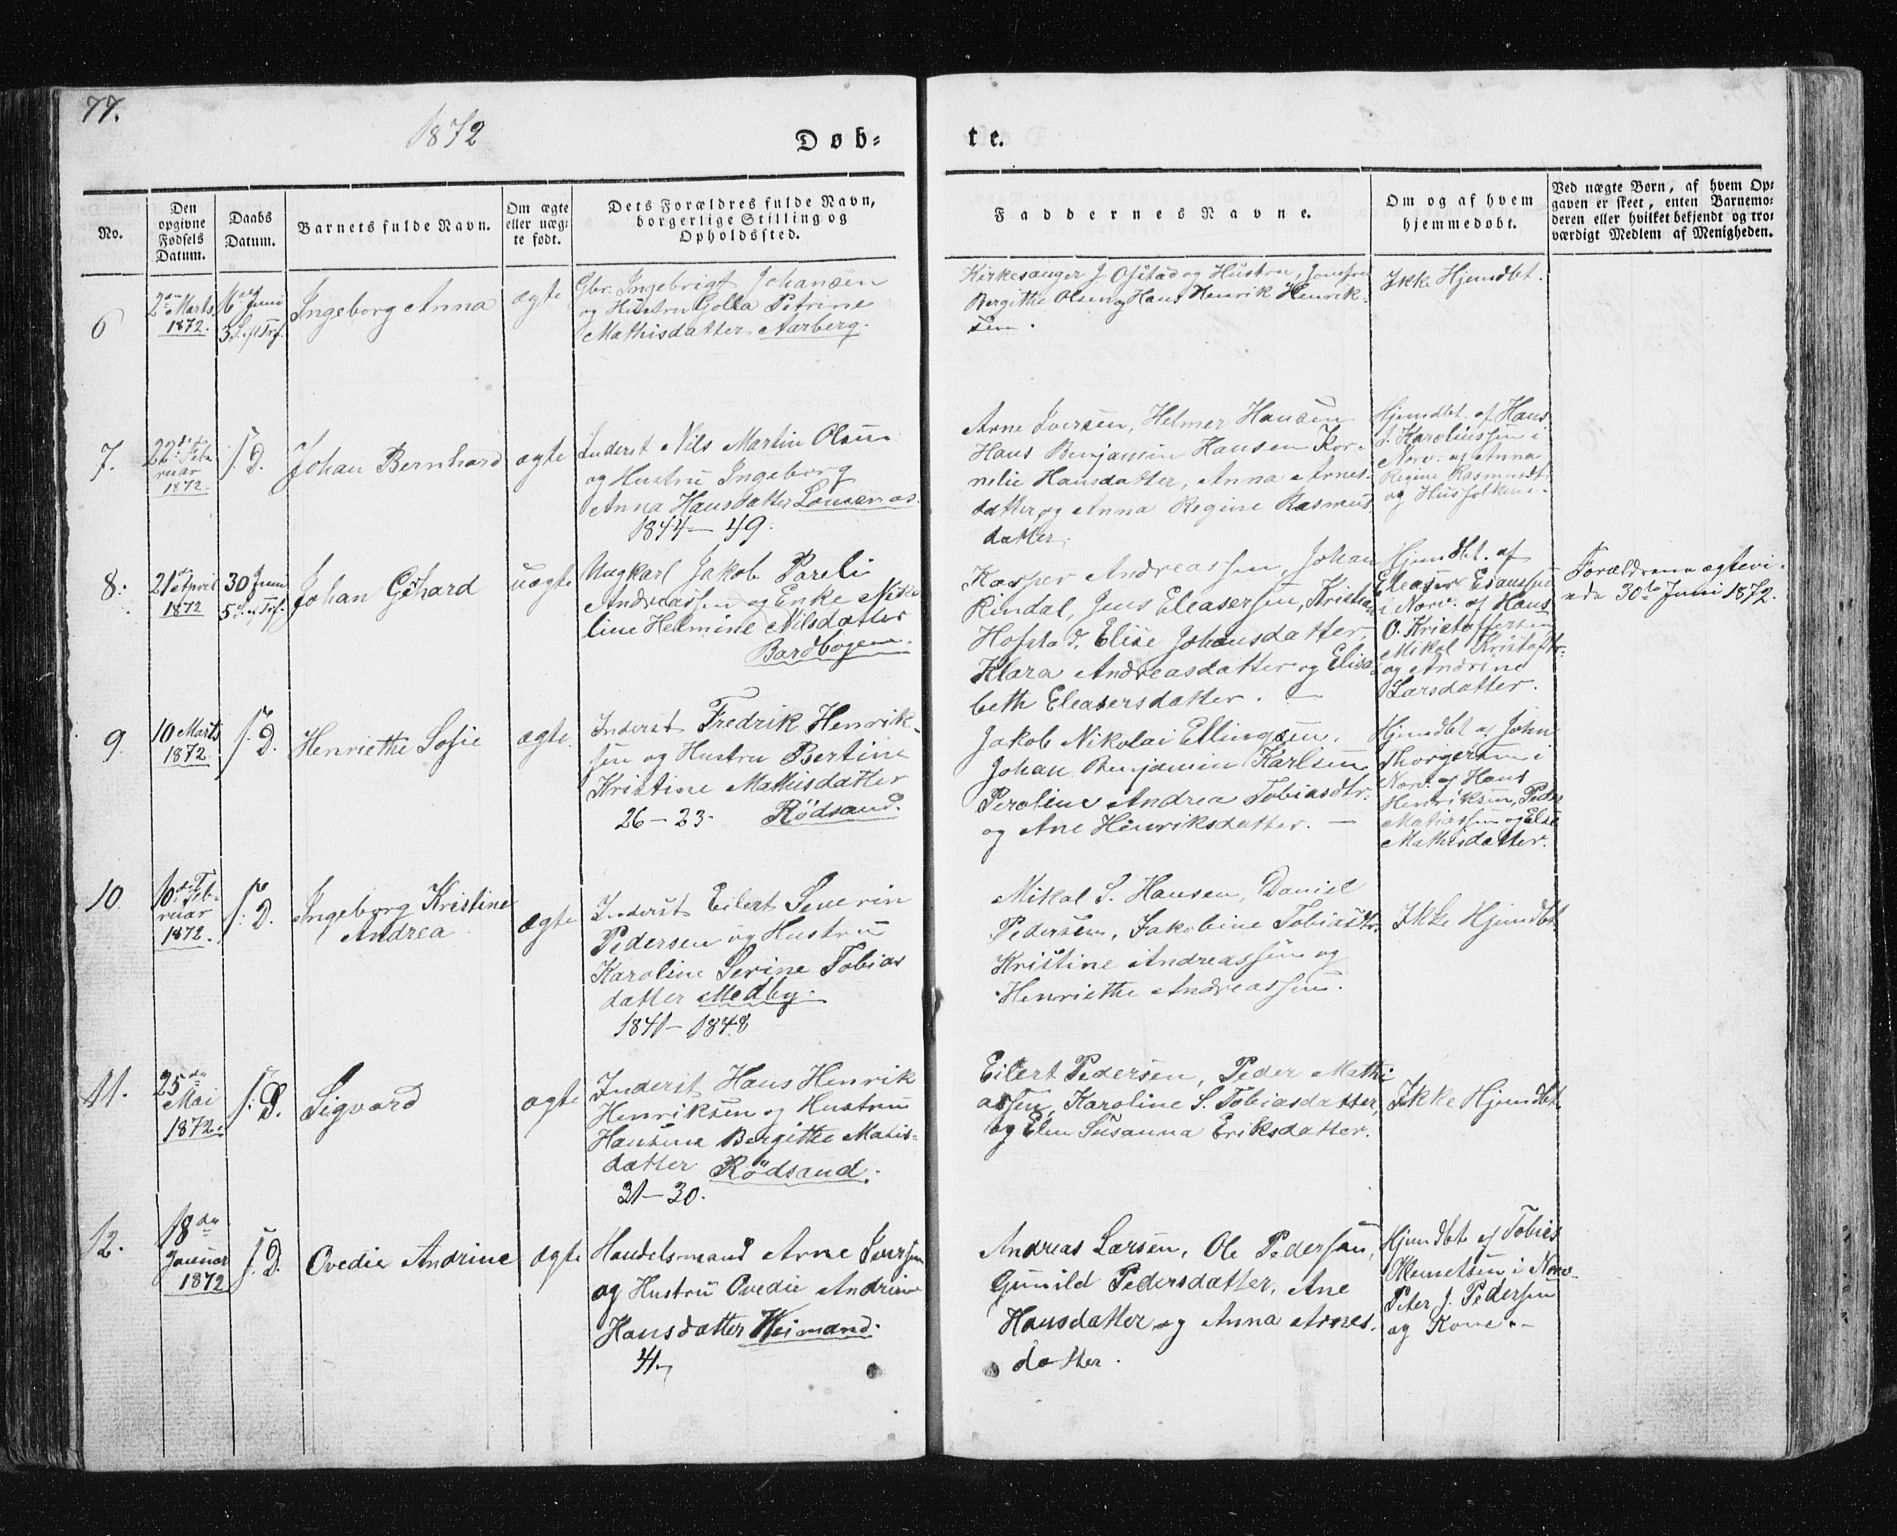 77.
1872
Døb=
te.
No.
Den opgivne Fødsels Datum.
Daabs Datum.
Barnets fulde Navn.
Om ægte eller uæg= te født.
Dets Forældres fulde Navn, borgerlige Stilling og Opholdssted.
Faddernes Navne.
Om og af hvem hjemmedøbt.
Ved uægte Børn, af hvem Op= gaven er skeet, enten Barnemo= deren eller hvilket bekjendt og tro= værdigt Medlem af Menigheden.
6
2den Marts
1872.
16 Juni
Ingeborg Anna
ægte
Gbr. Ingebrigt Johansen
og Hustru Golla Petrine
Mathisdatter Aarberg.
Kirkesanger J. Ofstad og Hustru, Jomfru
Bergitte Olsen og Hans Henrik Henrik-
sen.
Ikke Hjemdbt.
7.
22de Feb
ruar
1872.
s. D.
Johan Bernhard
ægte
Inderst Nils Martin Olsen
og Hustru Ingeborg
Anna Hansdatter
1844 - 49.
Arne Iversen, Helmer Hansen
Hans Benjamin Hansen Kor-
nelie Hansdatter, Anna Arnes-
datter og Anna Regine Rasmus
datter.
Hjemdbt. af Hans
J. Karoliussen i
Nærv. af Anna
Regine Rasmusdt
og Husfolkene.
8.
21de April
1872
30 Juni
Johan Gerhard
uægte
Ungkarl Jakob Pareli
Andreassen og Enke Niko
line Helmine Nilsdatter
Bardbogen.
Kasper Andreassen, Johan
Rindal, Jens Eleasersen, Kristian
Hofstad, Elise Johansdatter,
Klara Andreasdatter og Elisa
beth Eleasersdatter. —
Hjemdbt. af
Eleaser Esaussen
i Nærv. af Hans
O. Kristoffersen
Mikal Kristoffr.
og Andrine
Larsdatter.
Forældrene ægtevi-
ede 30te Juni 1872.
9.
10 Marts
1872.
s. D.
Henriethe Sofie
ægte.
Inderst Fredrik Henrik-
sen og Hustru Bertine
Kristine Mathisdatter
26 - 23. Rödsand.
Jakob Nikolai Ellingsen,
Johan Benjamin Karlsen
Peroline Andrea Tobiasdtr.
og Ane Henriksdatter. —
Hjemdbt af John
Thorgersen i
Nærv. af Hans
Henriksen, Peder
Matiassen og Else
Mathisdatter.
10
Feb-
ruar
1872.
s. D.
Ingeborg Kristine
Andrea
ægte
Inderst Eilert Severin
Pedersen og Hustru
Karoline Serine Tobias
datter Medby.
1841 - 1848
Mikal S. Hansen, Daniel
Pedersen, Jakobine Tobiasdtr.
Kristine Andreassen og
Henriethe Andreassen.
Ikke Hjemdbt
11.
25de
Mai
1872.
s. D.
Sigvard
ægte
Inderst Hans Henrik
Henriksen og Hustru
Hansina Bergitte Matis-
datter Rödsand.
31 - 30.
Eilert Pedersen, Peder Mathi
assen, Karoline S. Tobiasdatter,
og Elen Susanna Eriksdatter.
Ikke Hjemdbt
12.
18de
Januar
1872
s. D.
Ovedie Andrine
ægte
Handelsmand Arne Iversen
og Hustru Ovedie Andrine
Hansdatter Heimand.
41 -
Andreas Larsen, Ole Pedersen,
Gunild Pedersdatter, Ane
Hansdatter og Anna Arnes-
datter.
Hjemdbt af Tobias
Klemetsen i Nærv.
Peter J. Pedersen
og Kone. -